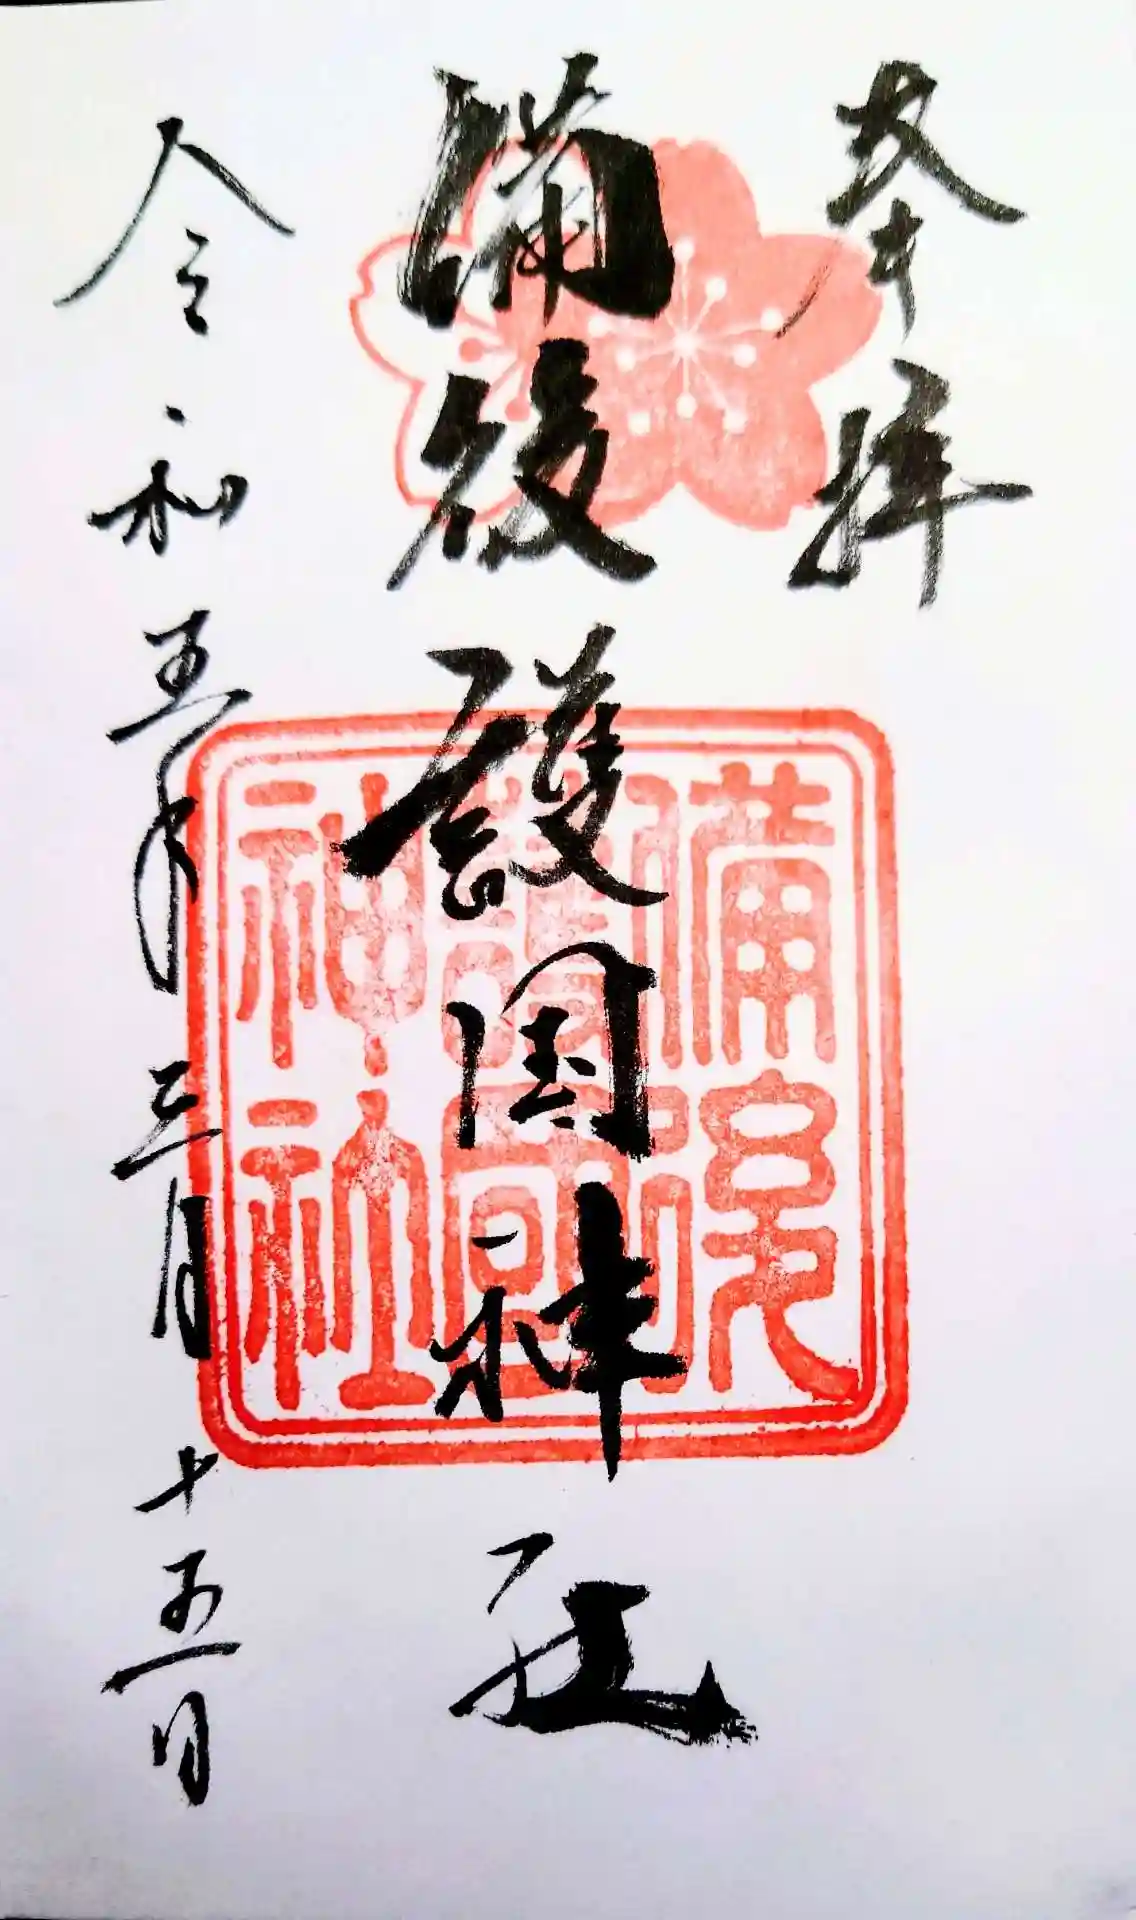 奉拝
備後護国神社
備後護國神社
令和五年三月十五日